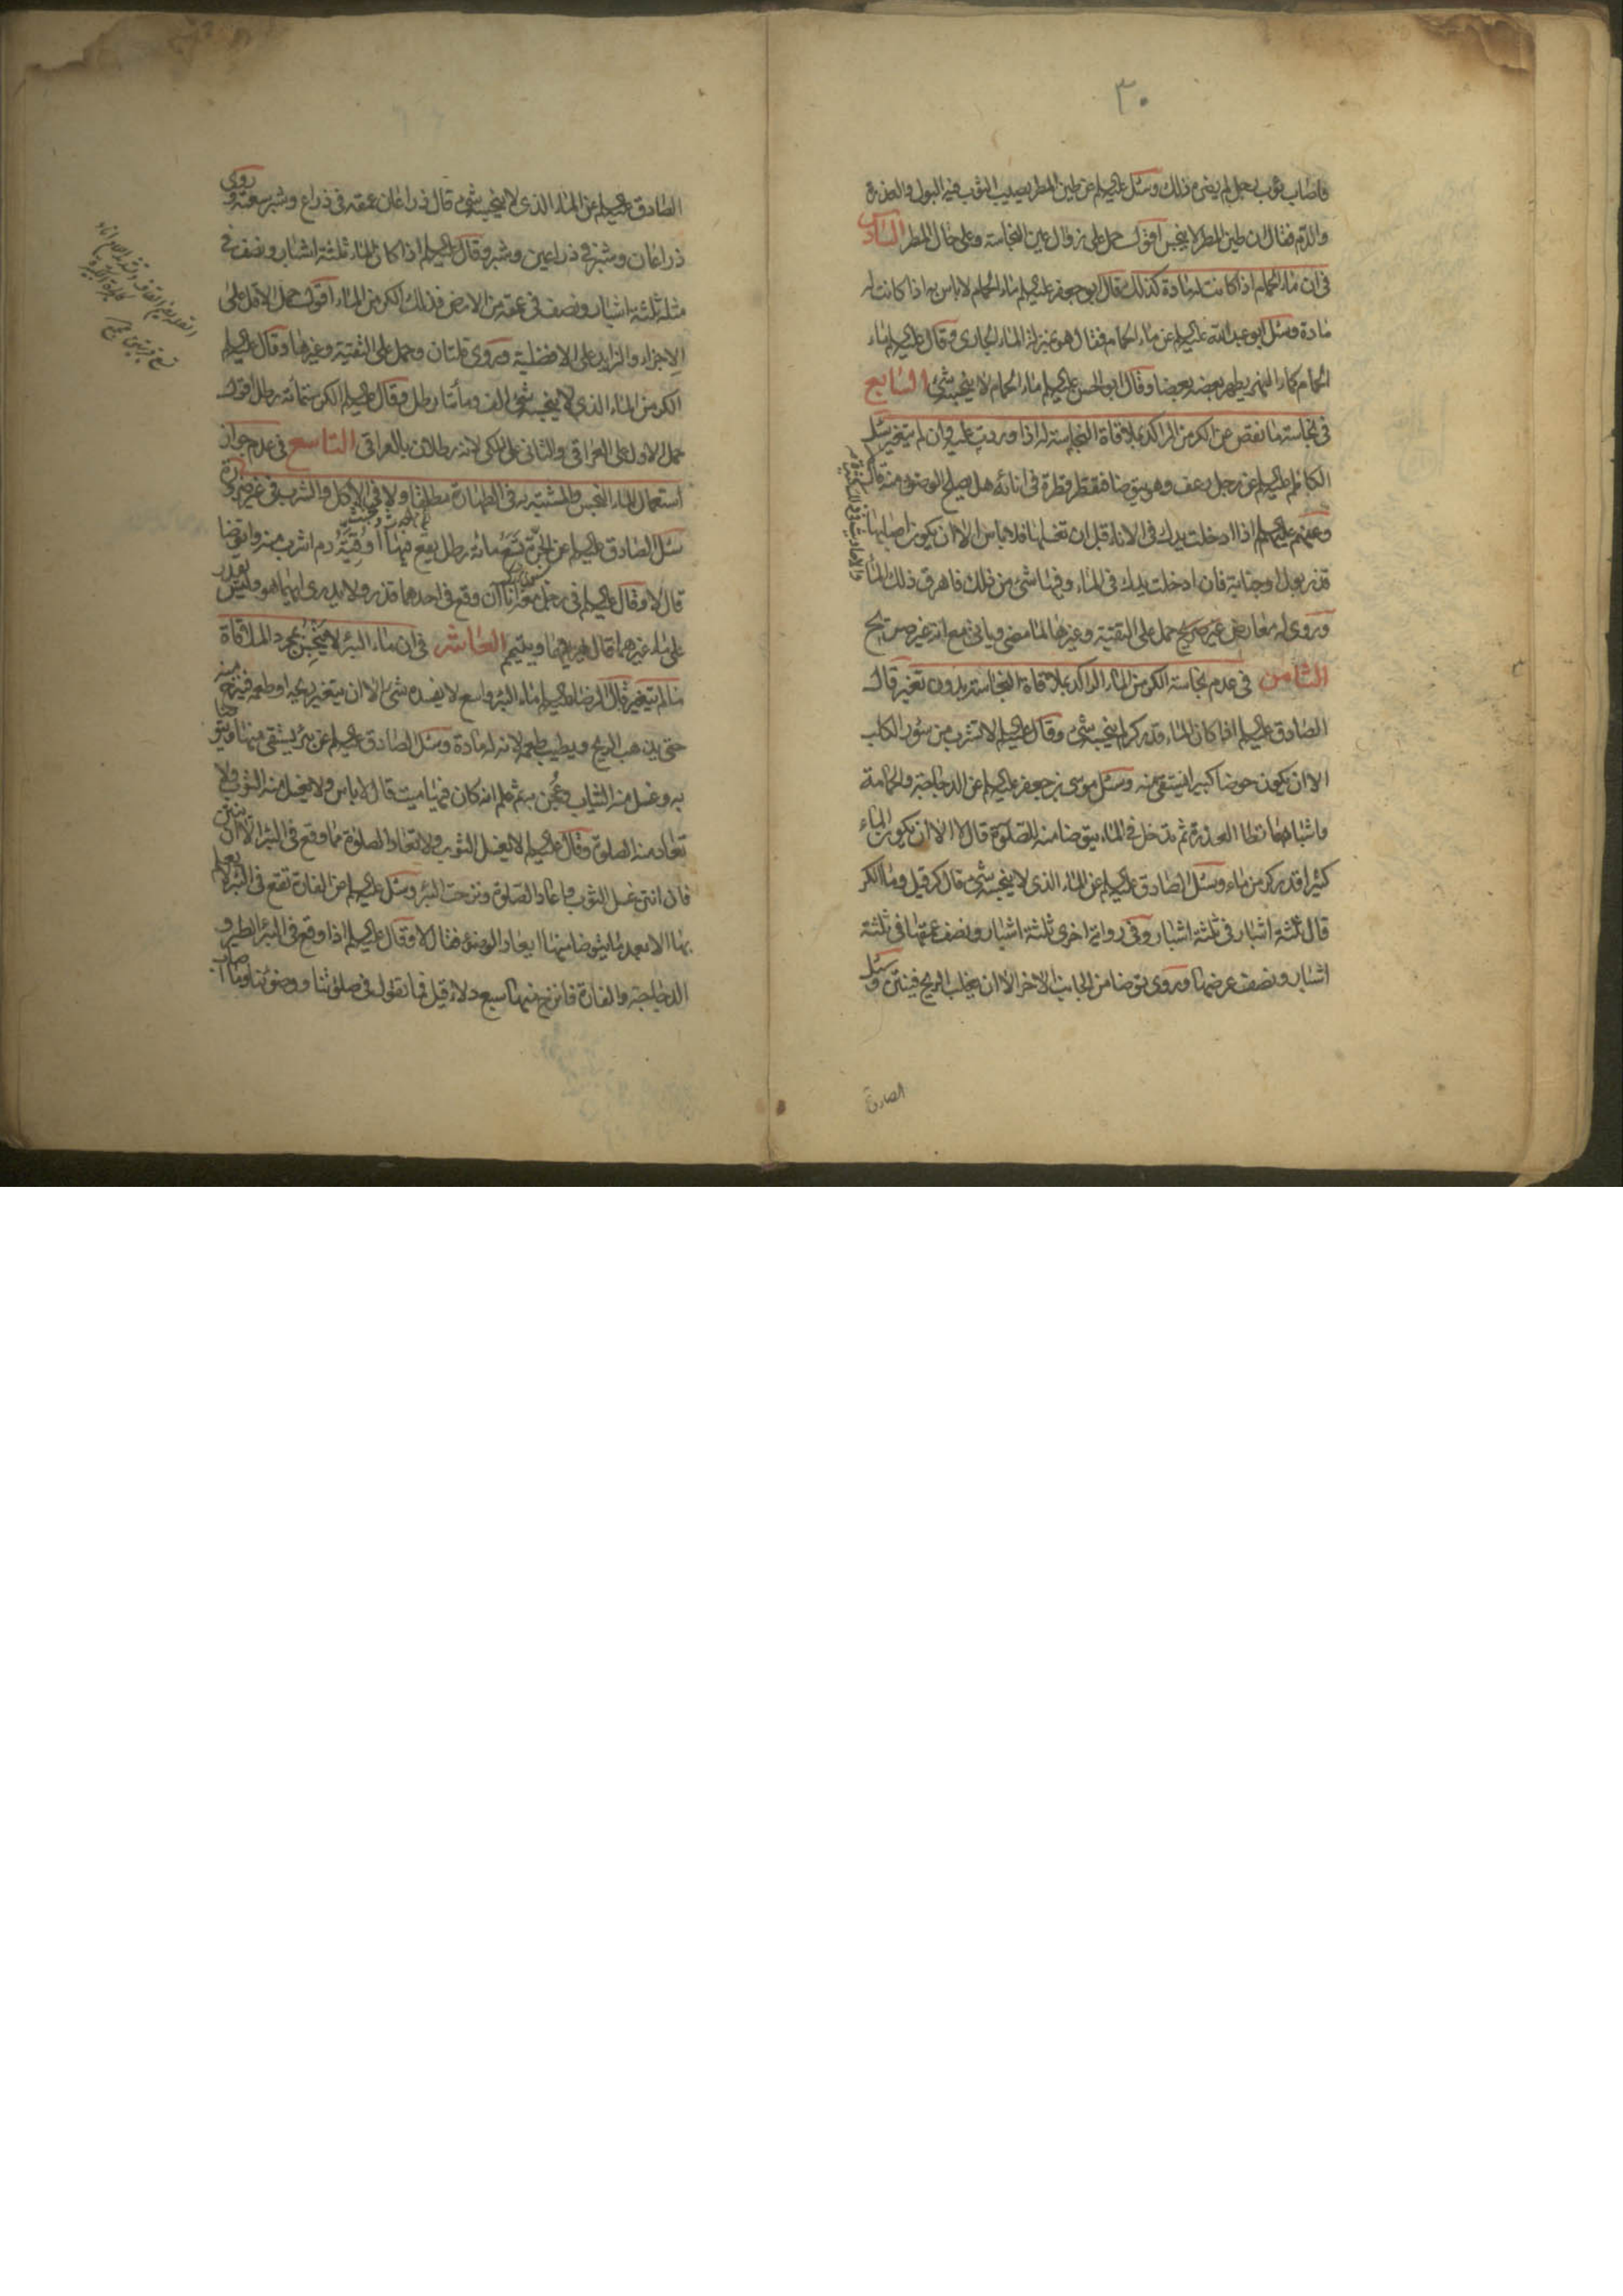 ٣٠
فاصاب ثوب رجل لم يضره ذلك وسئل عليه السلم عن طين المطر يصيب الثوب فيه البول والعذرة
والدم فقال ان طين المطر لا ينجس اقول حمل على زوال عين النجاسة وعلى حال المطر السادس
فى ان ماء الحمام اذا كانت له مادة كذلك قال ابو جعفر عليه السلم ماء الحمام لا باس به اذا كانت له
مادة وسئل ابو عبد الله عليه السلم عن ماء الحمام فقال هو بمنزلة الماء الجارى وقال عليه السلم ماء
الحمام كماء النهر يطهر بعضه بعضا وقال ابو الحسن عليه السلم ماء الحمام لا ينجسه شئ السابع
فى نجاسة ما نقص عن الكر من الراكد بملاقاة النجاسة له اذا وردت عليه وان لم يتغير سئل
الكاظم عليه السلم عن رجل رعف وهو يتوضا فقطر قطرة فى انائه هل يصلح الوضوء منه قال لا
وعنهم عليهم السلم اذا ادخلت يدك فى الاناء قبل ان تغسلها فلا باس الا ان يكون اصابها
قذر بول او جنابة فان ادخلت يدك فى الماء وفيها شئ من ذلك فاهرق ذلك الماء
وروى له معارض غير صريح حمل على التقية وغيرها لما مضى وياتى مع انه غير صريح
الثامن فى عدم نجاسة الكر من الماء الراكد بملاقاة النجاسة بدون تغير قال
الصادق عليه السلم اذا كان الماء قدر كر لم ينجسه شئ وقال عليه السلم لا تشرب من سؤر الكلب
الا ان يكون حوضا كبيرا يستقى منه وسئل موسى بن جعفر عليه السلم عن الدجاجة والحمامة
واشباههما تطا العذرة ثم تدخل فى الماء يتوضا منه للصلوة قال لا الا ان يكون الماء
كثيرا قدر كر من ماء وسئل الصادق عليه السلم عن الماء الذى لا ينجسه شئ قال كر قيل وما الكر
قال ثلثة اشبار فى ثلثة اشبار وفى رواية اخرى ثلثة اشبار ونصف عمقها فى ثلثة
اشبار ونصف عرضها وروى توضا من الجانب الاخر الا ان يغلب الريح فينتن وسئل
الصادق
الصادق عليه السلم عن الماء الذى لا ينجسه شئ قال ذراعان عمقه فى ذراع وشبر سعته وروى
ذراعان وشبر فى ذراعين وشبر وقال عليه السلم اذا كان الماء ثلثة اشبار ونصف فى
مثله ثلثة اشبار ونصف فى عمقه من الارض فذلك الكر من الماء اقول حمل الاقل على
الاجزاء والزايد على الافضلية وروى قلتان وحمل على التقية وغيرها وقال عليه السلم
الكر من الماء الذى لا ينجسه شئ الف ومأتا رطل وقال عليه السلم الكر ستمأئة رطل اقول
حمل الاول على العراقى والثانى على المكى لانه رطلان بالعراقى التاسع فى عدم جواز
استعمال الماء النجس والمشتبه به فى الطهارة مطلقا ولا فى الاكل والشرب فى غير ضرورة
سئل الصادق عليه السلم عن الجرة تسع مائة رطل يقع فيها اوقية دم اشرب منه واتوضا
قال لا وقال عليه السلم فى رجل معه اناآن وقع فى احدهما قذر ولا يدرى ايهما هو وليس يقدر
على ماء غيرهما قال يهريقهما ويتيمم العاشر فى ان ماء البئر لا ينجس بمجرد الملاقاة
ما لم يتغير قال الرضا عليه السلم ماء البئر واسع لا يفسده شئ الا ان يتغير ريحه او طعمه فينزح منه
حتى يذهب الريح ويطيب طعمه لانه له مادة وسئل الصادق عليه السلم عن بئر يستقى منها ويتوضا
به وغسل منه الثياب وعجن به ثم علم انه كان فيها ميت قال لا باس ولا يغسل منه الثوب ولا
تعاد منه الصلوة وقال عليه السلم لا يغسل الثوب ولا تعاد الصلوة مما وقع فى البئر الا ان ينتن
فان انتن غسل الثوب واعاد الصلوة ونزحت البئر وسئل عليه السلم عن الفارة تقع فى البئر لا يعلم
بها الا بعد ما يتوضا منها ايعاد الوضوء فقال لا وقال عليه السلم اذا وقع فى البئر الطير و
الدجاجة والفارة فانزح منها سبع دلاء قيل فما تقول فى صلوتنا ووضوئنا وما اصاب